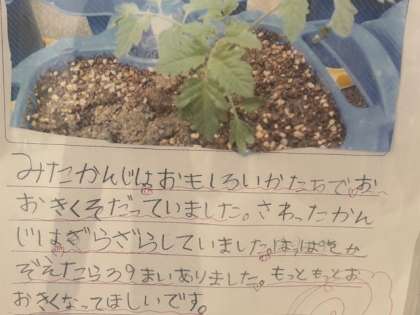 みたかんじはおもしろいかたちでお
おきくそだっていました。さわったかん
じはざらざらしていました。はっぱをか
ぞえたら39まいありました。もっともっとお
おきくなってほしいです。